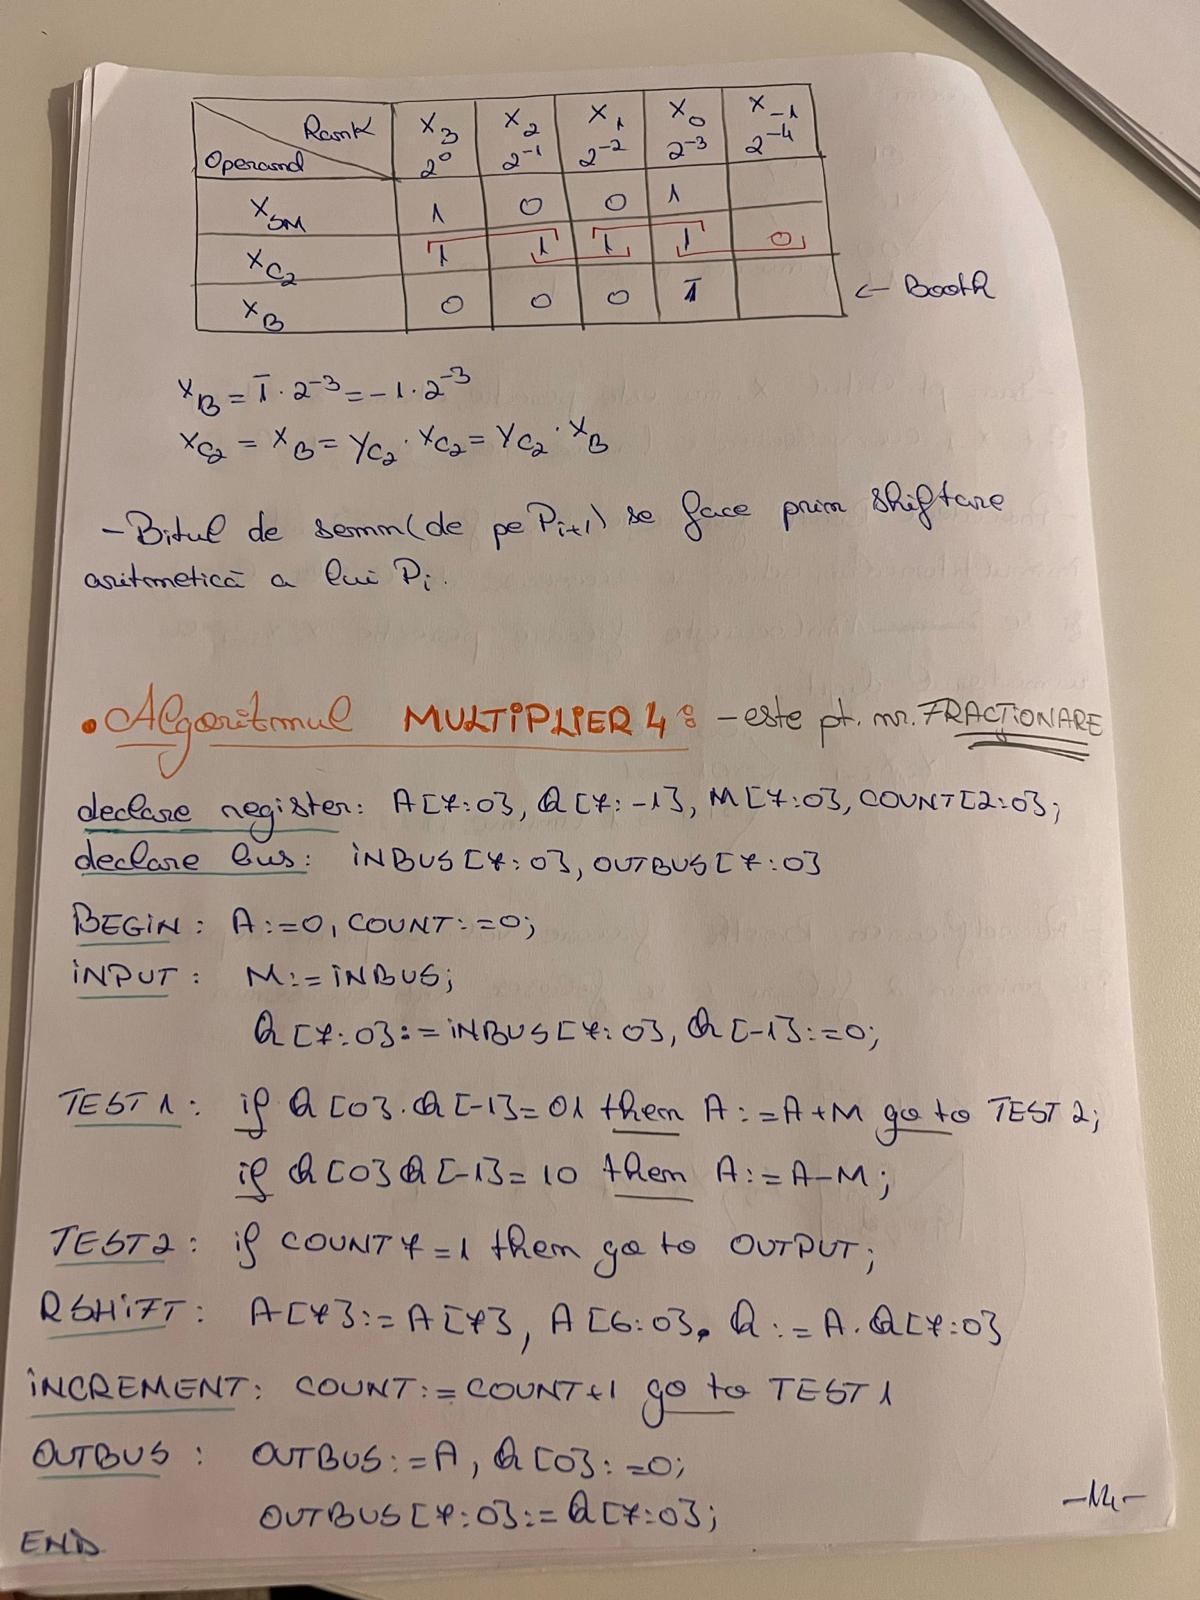 Rank X₃ X₂ X₁ X₀ X₋₁
Operand 2⁰ 2⁻¹ 2⁻² 2⁻³ 2⁻⁴
X_SM 1 0 0 1
X_C₂ 1 1 1 1 0
X_B 0 0 0 1̄ ← Booth
X_B = 1̄ · 2⁻³ = -1 · 2⁻³
X_C₂ = X_B = Y_C₂ · X_C₂ = Y_C₂ · X_B
- Bitul de semn (de pe P_i+1) se face prin shiftare
aritmetică a lui P_i.
• Algoritmul MULTIPLIER 4: - este pt. nr. FRACȚIONARE
declare register: A[7:0], Q[7:-1], M[7:0], COUNT[2:0];
declare bus: INBUS[7:0], OUTBUS[7:0]
BEGIN: A:=0, COUNT:=0;
INPUT: M:=INBUS;
Q[7:0]:=INBUS[7:0], Q[-1]:=0;
TEST 1: if Q[0].Q[-1]=01 then A:=A+M go to TEST 2;
if Q[0]Q[-1]=10 then A:=A-M;
TEST2: if COUNT7=1 then go to OUTPUT;
RSHIFT: A[7]:=A[7], A[6:0].Q:=A.Q[7:0]
INCREMENT: COUNT:=COUNT+1 go to TEST 1
OUTBUS: OUTBUS:=A, Q[0]:=0;
OUTBUS[7:0]:=Q[7:0];
END